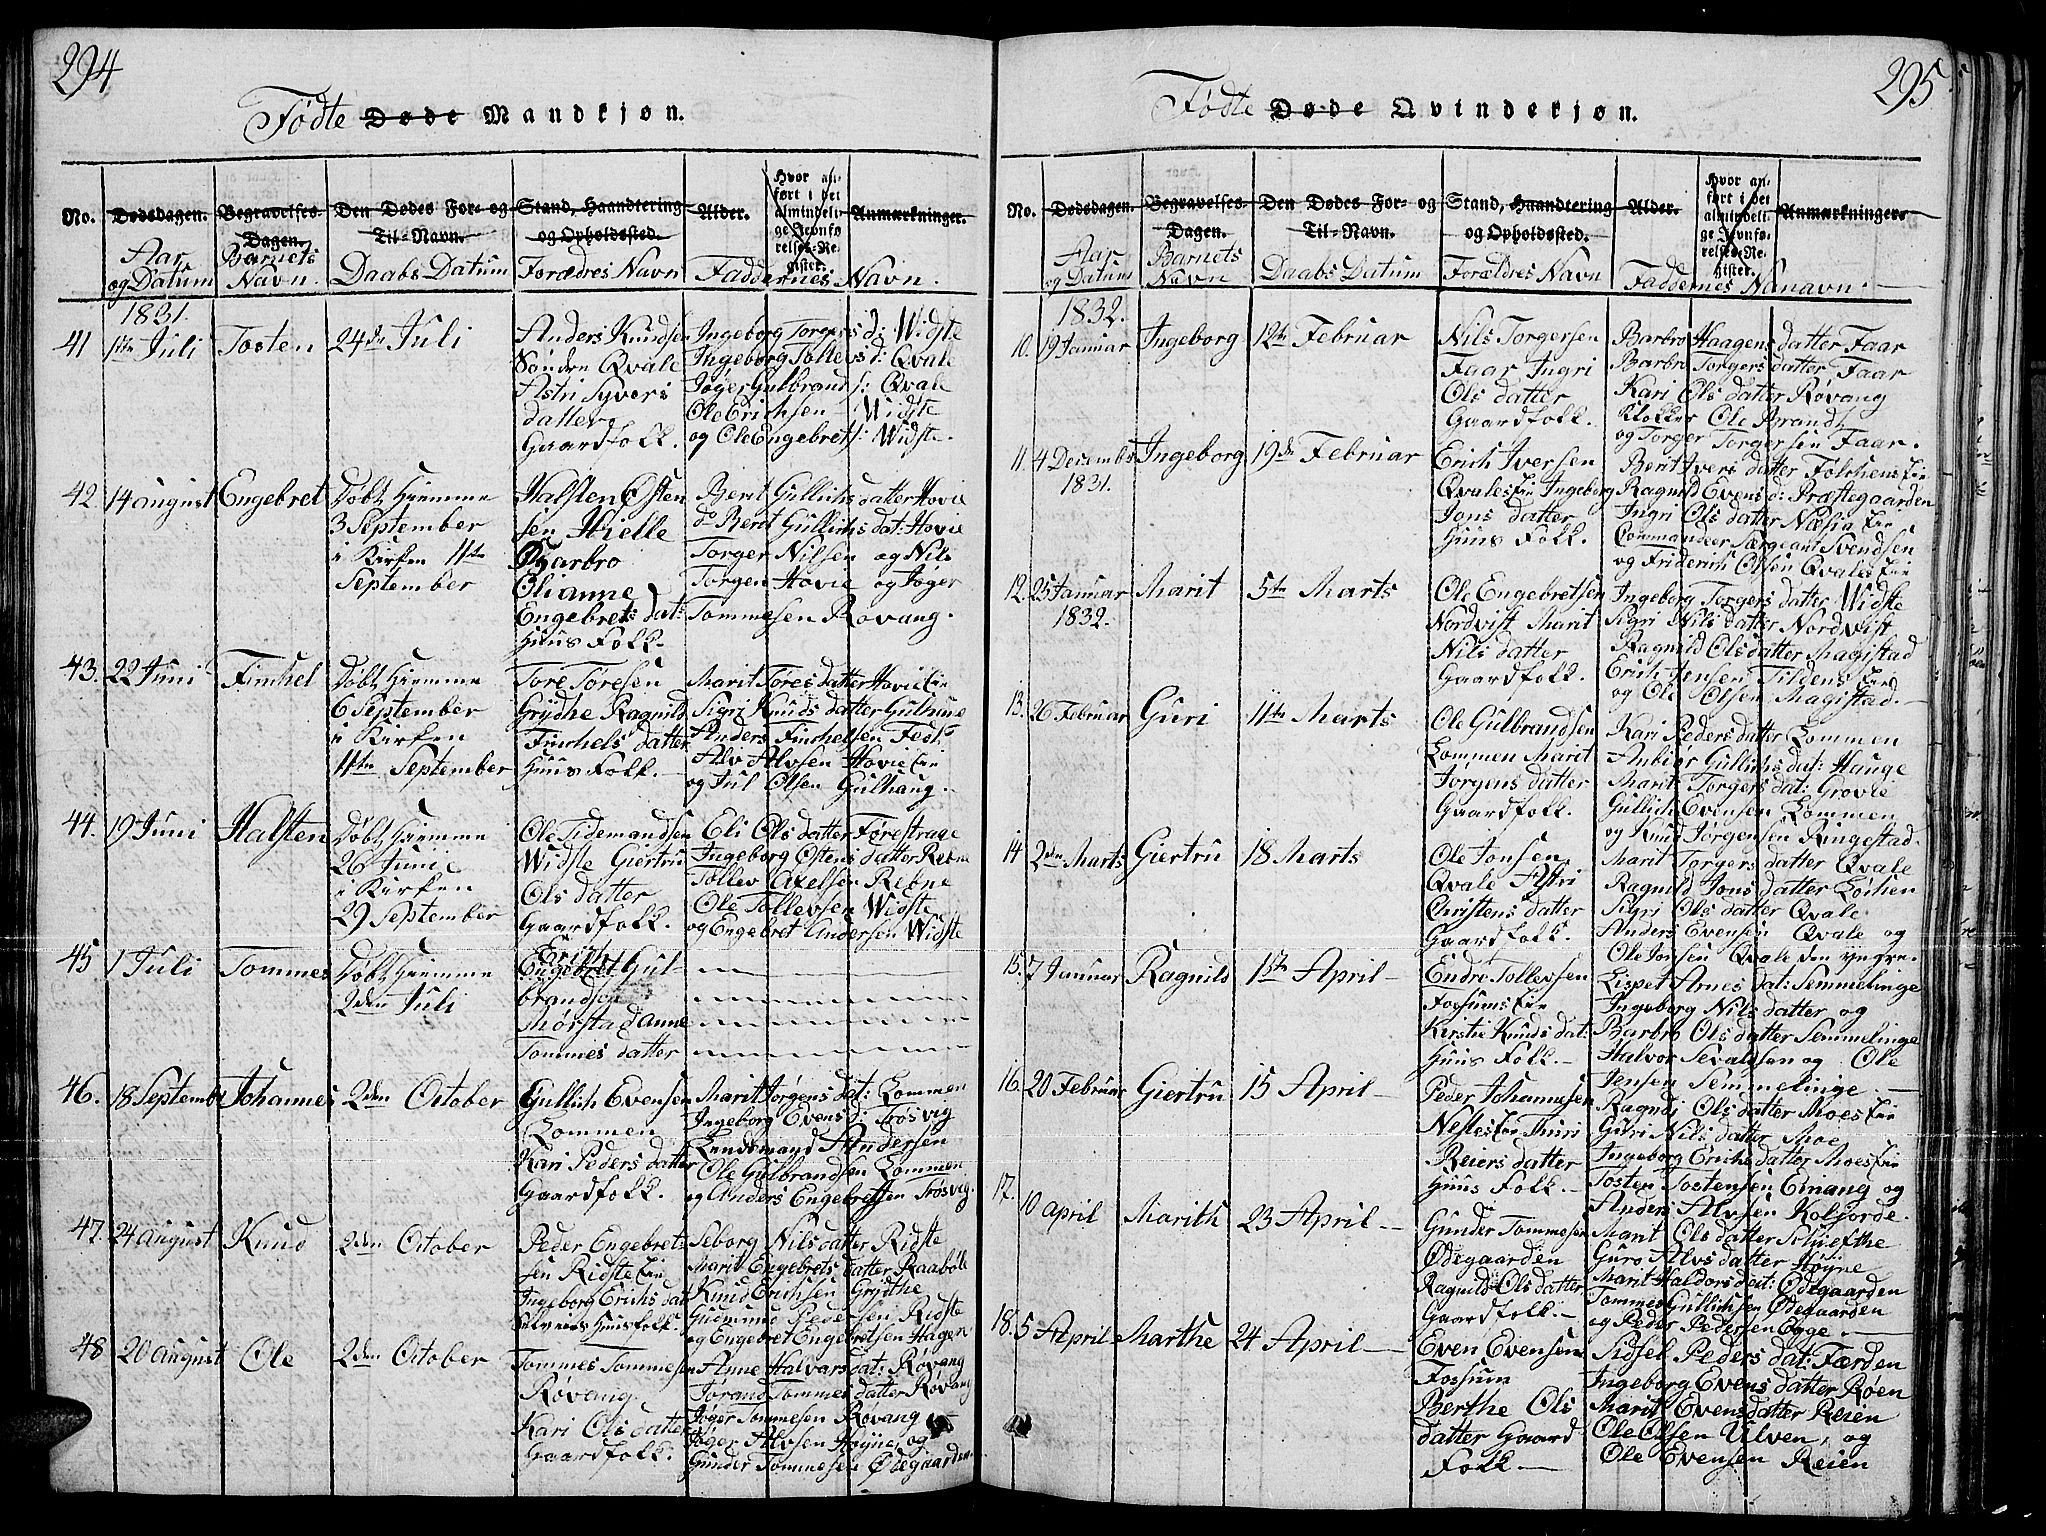 294
Fødte Døde Mandkjøn.
No. Dødsdagen. Begravelses-Dagen. Den Dødes For- og Til-Navn. Stand, Haandtering og Opholdssted. Alder. Hvor anført i det almindelige Jevnførelses-Register. Anmærkninger.
Aar og Datum Barnets Navn. Daabs Datum Forældres Navn Faddernes Navn.
1831.
41 1ste Juli Tosten 24de Juli
Anders Knudsen
Søndre Qvale
Astri Syvers
datter
Gaardfolk.
Ingeborg Torgers d: Widste
Ingeborg Tollevs d: Qvale
Jøger Gulbrands: Qvale
Ole Erichsen Widste
og Ole Engebrets: Widste.
42 14 august Engebret
Døbt Hiemme
3 September
i Kirken 11te
September
Halsten Østen
sen Hielle
Barbro
Olianne
Engebrets dat:
Huus Folk.
Berit Gullichs datter Hovie
do Berit Gullichs dat: Hovie
Torger Nilsen og Nils
Torgen Hovie og Jøger
Tommesen Rovang.
43. 22 Juni Finchel
Døbt Hiemme
6 September
i Kirken
11te September
Tore Toresen
Grydhe Ragnild
Finchels datter
Huus Folk.
Marit Tores datter Hovie Eie
Sigri Knuds datter Gulhaug
Anders Finchelsen Fedt
Alv Alvsen Hovie Eie
og Jul Olsen Gulhaug.
44. 19 Juni Halsten
Døbt Hiemme
26 Junie
i Kirken
29 September
Ole Tidemandsen
Widste Giertru
Ols datter
Gaardfolk.
Eli Ols datter Førestrage
Ingeborg Østens datter Rebne
Tollev Axelsen Rebne
Ole Tollevsen Widste
og Engebret Andersen Widste
45 1 Juli Tommes
Døbt Hiemme
2den Juli
Erich
Engebret Gul-
brandsen
Mørstad Anne
Tommes datter
46. 18 Septembr Johannes 2den October
Gullich Evensen
Lommen
Kari Peders datter
Gaardfolk.
Marit Jørgens dat: Lommen
Ingeborg Evens d: Trøsvig
Lendsmand Andersen
Ole Gulbrandsen Lommen
og Anders Engebretsen Trøsvig.
47. 24 august Knud 2den October
Peder Engebret-
sen Ridste Eie
Ingeborg Erichs dat
Huusfolk.
Seborg Nils datter Ridste
Marit Engebrets datter Raabøle
Knud Erichsen Grydhe
Gudmund Pedersen Ridste
og Engebret Engebretsen Hagen
48 20 august Ole 2den October
Tommes Tommesen
Røvang
Kari Ols datter
Gaardfolk.
Anne Halvars dat: Røvang
Jørand Tommes datter Røvang
Jøger Tommesen Røvang
Jøger Alvsen Høyne, og
Gunder Tommesen Ødegaarden
295
Fødte Døde Qvindekjøn.
No. Dødsdagen. Begravelses Dagen. Den Dødes For- og Til-Navn. Stand, Haandtering og Opholdssted. Alder. Hvor anført i det almindelige Jevnførelses-Register. Anmærkninger.
Aar og Datum Barnets Navn Daabs Datum Forældres Navn Faddernes Nanavn.
1832.
10. 19 Januar Ingeborg 12te Februar
Nils Torgersen
Faar Ingri
Ols datter
Gaardfolk.
Barbro Haagens datter Faar
Barbro Torgers datter Faar
Kari Ols datter Røvang
Klokker Ole Brandt
og Torger Torgersen Faar.
11. 4 Decembr 1831. Ingeborg 19de Februar
Erich Iversen
Qvales Eie Ingeborg
Jons datter
Huus Folk.
Berit Ivers datter Folchens Eie
Ragnild Evens d: Præstegaarden
Ingri Ols datter Næsia Eie
Commandeer Særgeant Svendsen
og Friderich Olsen Qvales Eie
12. 25 Januar 1832. Marit 5te Marts
Ole Engebretsen
Nordvist Marit
Nils datter
Gaardfolk.
Ingeborg Torgers datter Widste
Sigri Nils datter Nordvist
Ragnild Ols datter Magistad
Erich Jensen Tildens Eie
og Ole Olsen Magistad.
13. 26 Februar Guri 11te Marts
Ole Gulbrandsen
Lommen Marit
Jorgens datter
Gaardfolk.
Kari Peders datter Lommen
Anbiør Gullichs dat: Hauge
Marit Torgers dat: Grovie
Gullich Evensen Lommen
og Knud Jorgensen Ringestad.
14 2den Marts Giertru 18 Marts
Ole Jonsen
Qvale Astri
Christens datter
Gaardfolk.
Marit Torgers datter Qvale
Ragnild Jons datter Lørhen
Sigri Ols datter Qvale
Anders Evensen Qvale og
Ole Jonsen Qvale den yngre.
15. 7 Januar Ragnild 1ste April
Endre Tollevsen
Fossums Eie
Kirstie Knuds dat:
Huus Folk.
Lispet Arnes dat: Semmelinge
Ingeborg Nils datter og
Barbro Ols datter Semmelinge
Halvor Sevaldsen og Ole
Jensen Semmelinge.
16. 20 Februar Giertru 15 April
Peder Johannesen
Nestes Eie Thuri
Reiers datter
Huus Folk.
Ragndi Ols datter Moes Eie
Guri Nils datter Moe
Ingeborg Erichs datter Moes Eie
Tosten Tostensen Emang og
Anders Alvsen Roljorde.
17. 10 april Marith 23 April
Gunder Tommesen
Ødegaarden
Ragnild Ols datter
Gaardfolk.
Marit Ols datter Schiefthe
Guro Alvs datter Høyne
Marit Haldors dat: Ødegaarden
Tommes Gullichsen Ødegaarden
og Peder Pedersen Egge.
18. 5 April Marthe 24 April
Even Evensen
Fossum
Berthe Ols
datter Gaard
Folk
Sidsel Peders dat: Færden
Ingeborg Evens datter Røen
Marit Evens datter Reien
Ole Olsen Ulven, og
Ole Evensen Reien